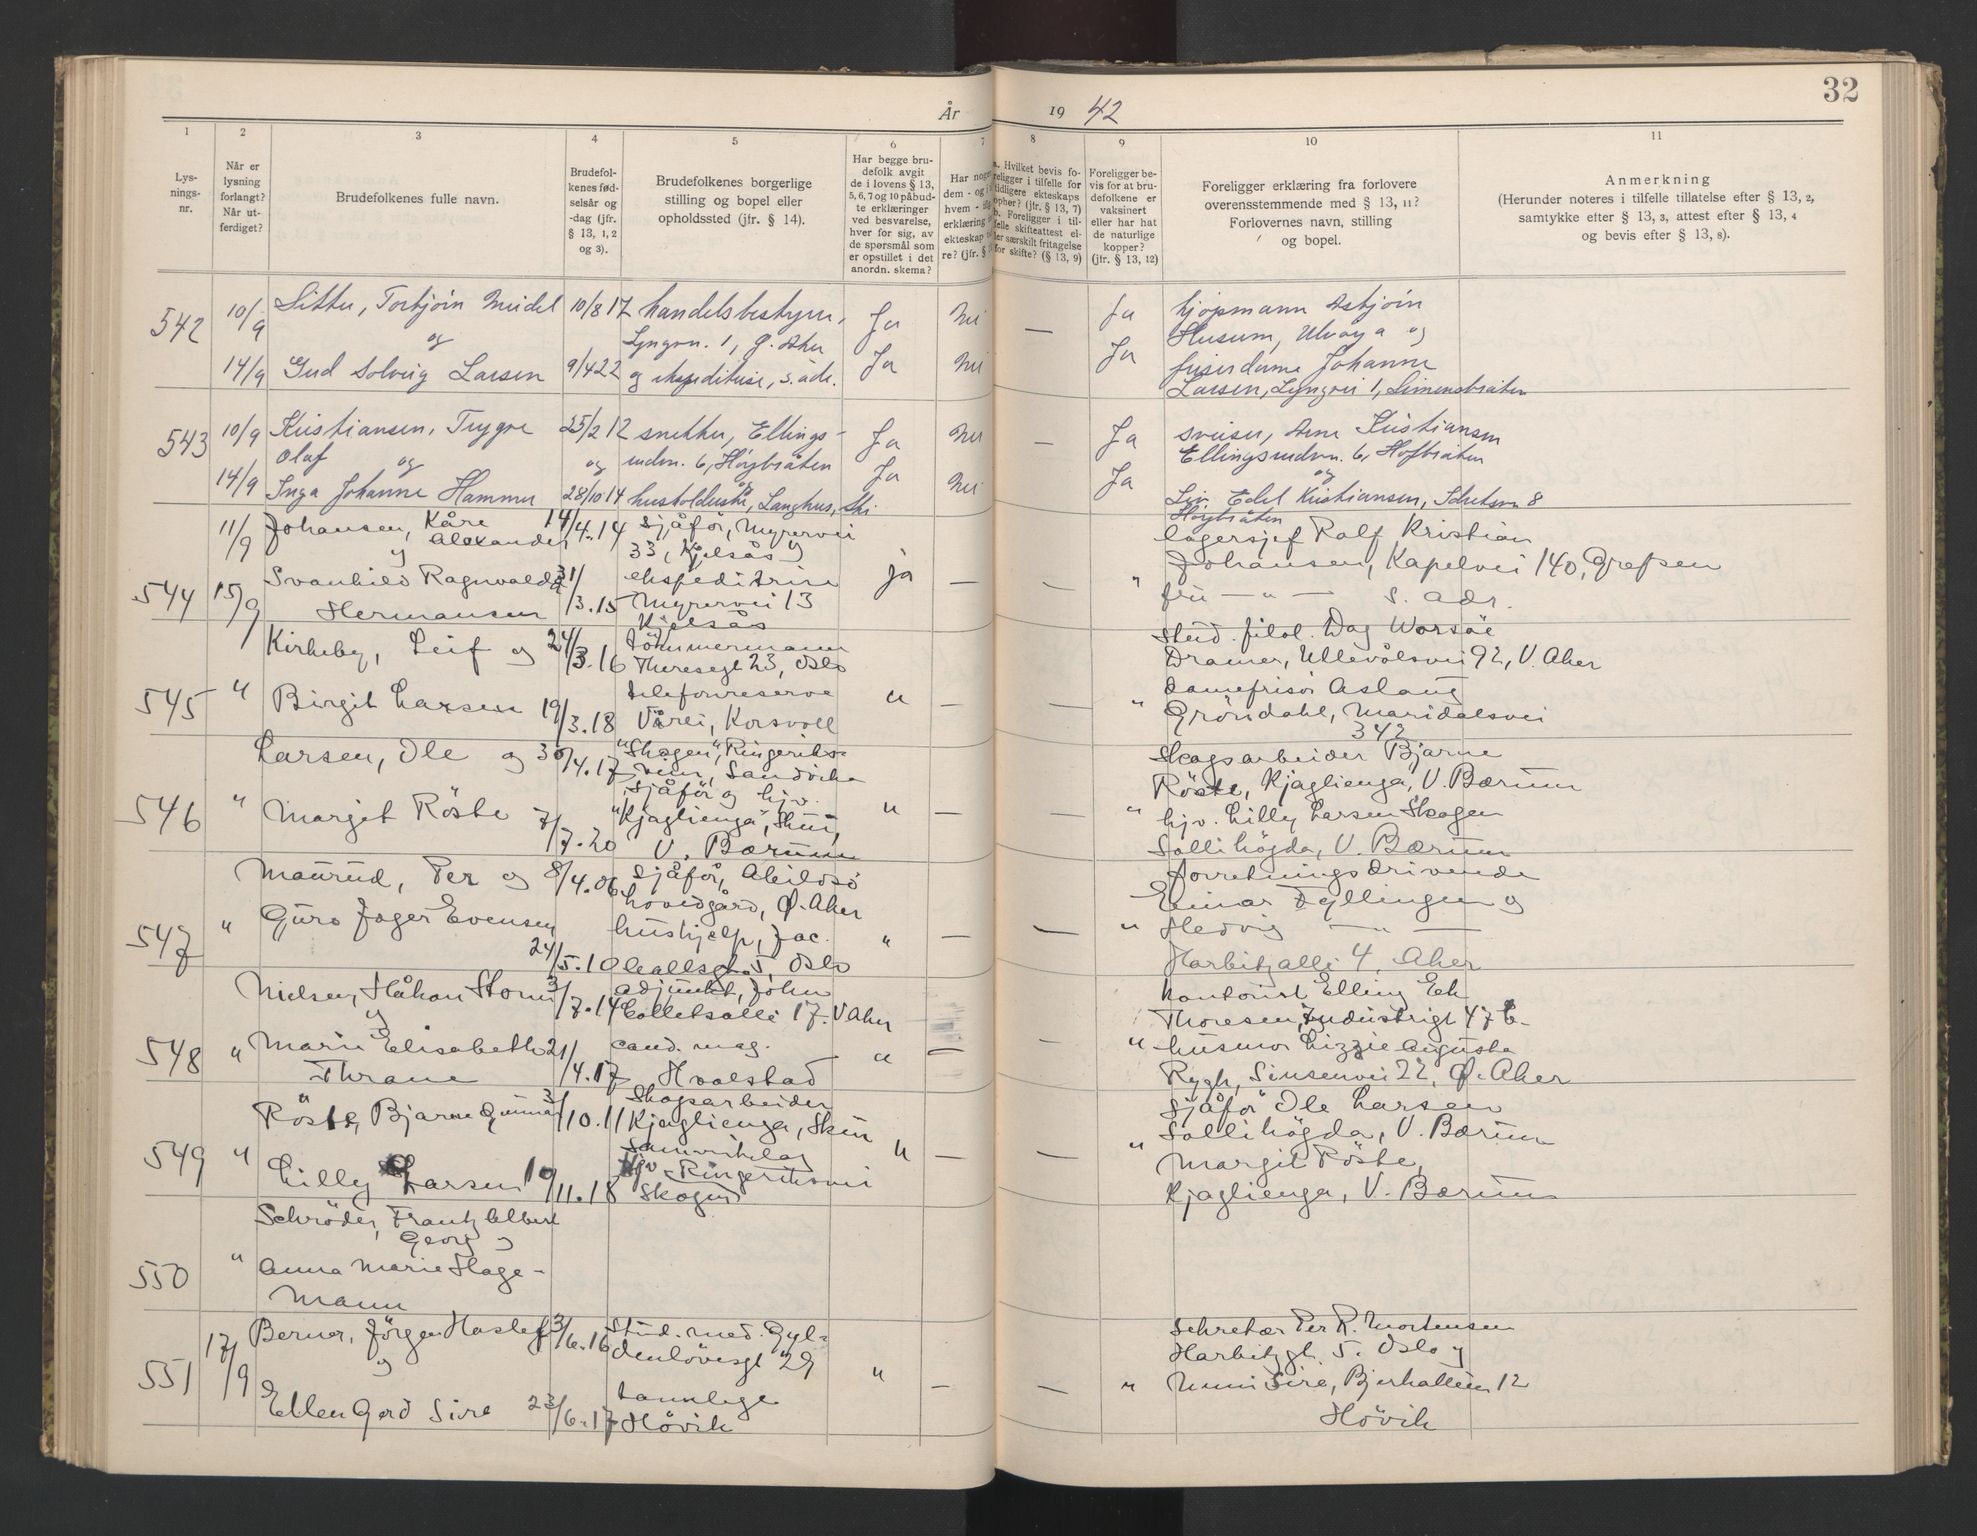 32
År 19 42
1 2 3 4 5 6 7 8 9 10 11
Lys-
nings-
nr.
Når er
lysning
forlangt?
Når ut-
ferdiget?
Brudefolkenes fulle navn.
Brudefol-
kenes fød-
selsår og
-dag (jfr.
§ 13, 1, 2
og 3).
Brudefolkenes borgerlige
stilling og bopel eller
opholdssted (jfr. § 14).
Har begge bru-
defolk avgit
de i lovens § 13,
5, 6, 7 og 10 påbud-
te erklæringer
ved besvarelse,
hver for sig, av
de spørsmål som
er opstillet i det
anordn. skema?
Har noget
dem - og i
hvem -
erklæring
ekteskap
re? (jfr. §
a. Hvilket bevis fo-
religger i tilfelle for
tidligere ekteskaps
ophør? (jfr. § 13, 7)
b. Foreligger i til-
felle skifteattest el-
ler særskilt fritagelse
for skifte? (§ 13, 9)
Foreligger be-
vis for at bru-
defolkene er
vaksinert
eller har hat
de naturlige
kopper?
(jfr. § 13, 12)
Foreligger erklæring fra forlovere
overensstemmende med § 13, 11?
Forlovernes navn, stilling
og bopel.
Anmerkning
(Herunder noteres i tilfelle tillatelse efter § 13, 2,
samtykke efter § 13, 3, attest efter § 13, 4
og bevis efter § 13, 8).
542 10/9 Sitter, Torbjörn Meidel 10/8 17 handelsbestyrer, Ja Nei — Ja kjøpmann Asbjörn
og Lyngvn. 1, Ø. Aker Husum, Ulvøya og
14/9 Gud Solveig Larsen 9/4 22 og ekspeditrise, s. adr. Ja Nei Ja friserdame Johanne
Larsen, Lyngvei 1, Simensbråten
543 10/9 Kristiansen, Trygve 25/2 12 snekker, Ellings- Ja Nei — Ja sveiser, Arne Kristiansen
Olaf og og rudvn. 6, Høybråten Ellingsrudvn. 6, Høybråten
og
14/9 Inga Johanne Hammer 28/10 14 husholderske, Langhus, Ski Ja Nei Ja Liv Edel Kristiansen, 8
Høybråten
11/9 Johansen, Kåre 14/4.14 sjåför, Myrervei lagersjef Ralf Kristian
Alexander
y 33, Kjelsås y Johansen, Kapelvei 140, Grefsen
544 15/9 Svanhild Ragnvalda 31/3.15 ekspeditrise ja — — " fru — " — s. adr.
Hermansen Myrervei 13
Kjelsås
Kirkeby, Leif og 24/3.16 tömmermann Stud. filol. Dag Worsöe
Theresegt 23, Oslo Dramer, Ullevålsvei 92, V. Aker
545 " Birgit Larsen 19/3.18 telefonreserve " — " damefrisör Aslaug
Vårei, Korsvoll Gröndahl, Maridalsvei
342
Larsen, Ole og 30/4.17 "Skogen", Ringeriks- Skogsarbeider Bjarne
veien, Sandvika Röste, Kjaglienga, V. Bærum
sjåför og hjv.
546 " Margit Röste 7/7.20 "Kjaglienga", Skui, " — — " hjv. Lilly Larsen Skogen
V. Bærum Sollihögda, V. Bærum
Maurud, Per og 8/4.06 sjåför, Abildsö forretningsdrivende
hovedgård, Ø. Aker Einar Fyllingen og
547 " Guro Jager Evensen 24/5.10 hushjelp, Jac. " — — " Hedvig — " —
Aallsgt. 5, Oslo Harbitzallé 4, Aker
Nielsen, Håkon Storm 3/7.14 adjunkt, John kontorist Elling Eck
y Colletsallé 17. V Aker Thoresen, Industrigt 47
548 " Marie Elisabeth 21/4.17 cand. mag. " — — " husmor Lizzie Auguste
Thrane Hvalstad Rygh, Sinsenvei 22, Ø. Aker
Röste, Bjarne Gunnar 3/10.11 Skogsarbeider sjåför Ole Larsen
Kjaglienga, Skui Sollihögda, V. Bærum
549 " Lilly Larsen 19/11.18 hjv. Ringeriksvei " — — " Margit Röste,
Skogen Kjaglienga, V. Bærum
Schröder, Frantz Albert
Georg y
550 " Anna Marie Hage-
mann
17/9 Berner, Jörgen Haslef 3/6.16 Stud. med. Gyl- Sekretær Per R. Mortensen
y denlövesgt 29 Harbitzgt. 5. Oslo y
551 Ellen Gerd Sire 23/6.17 tannlege " — — " Unni Sire, Bjerkalleen 12
Hövik Hövik